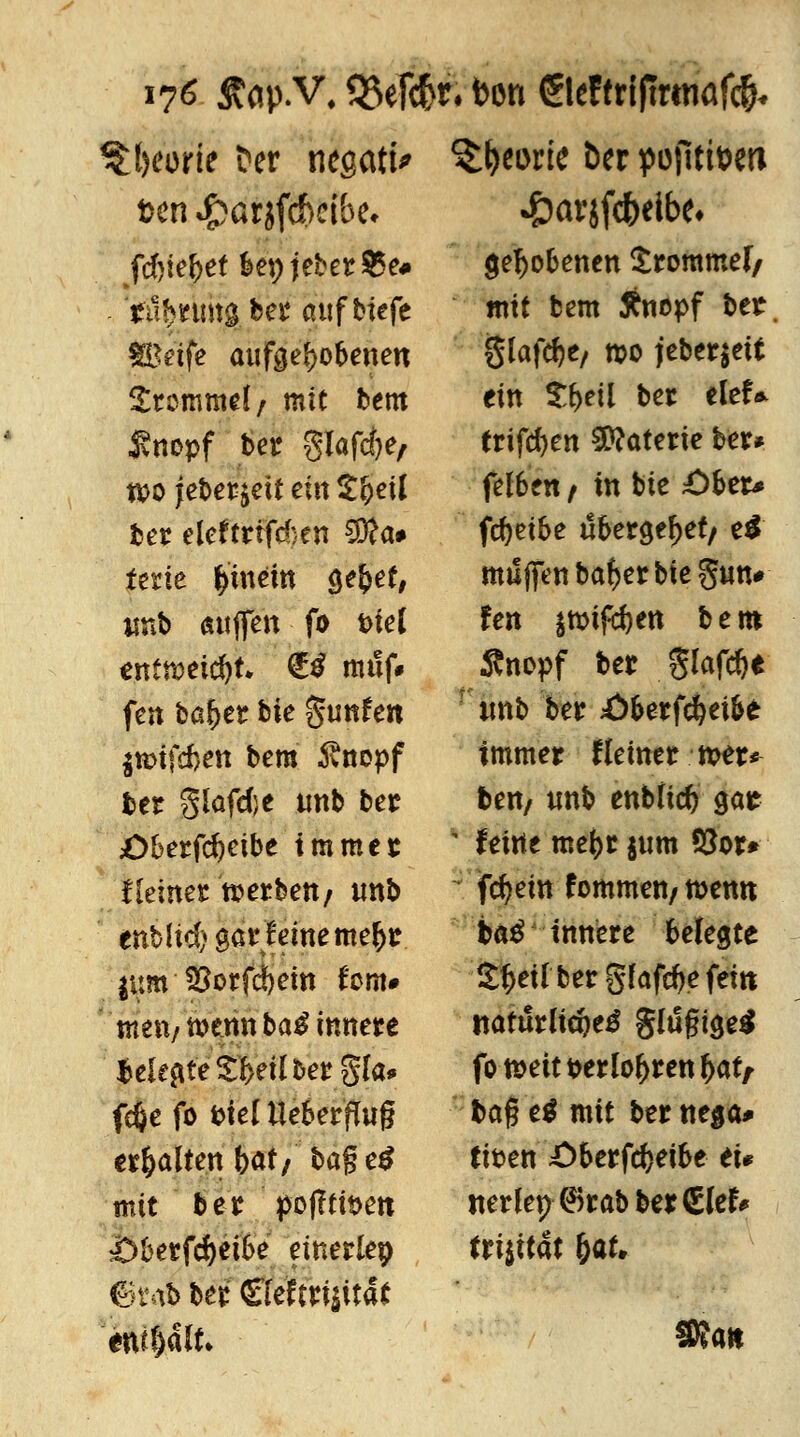 176 Kap.V. Beschr. von Elektrisirmasch.
Theorie der negati-
ven Harzscheibe.
schiehet bey jeder Be-
rührung der auf diese
Weise aufgehobenen
Trommel, mit dem
Knopf der Flasche,
wo jederzeit ein Theil
der elektrischen Ma-
terie hinein gehet,
und aussen so viel
entweicht. Es müs-
sen daher die Funken
zwischen dem Knopf
der Flasche und der
Oberscheibe immer
kleiner werden, und
endlich gar keine mehr
zum Vorschein kom-
men, wenn das innere
belegte Theil der Fla-
sche so viel Ueberfluß
erhalten hat, daß es
mit der positiven
Oberscheibe einerley
Grab der Elektrizität
enthält.
Theorie der positiven
Harzscheibe.
gehobenen Trommel,
mit dem Knopf der
Flasche, wo jederzeit
ein Theil der elek-
trischen Materie der-
selben, in die Ober-
scheibe übergehet, es
müssen daher die Fun-
ken zwischen dem
Knopf der Flasche
und der Oberscheibe
immer kleiner wer-
den, und endlich gar
keine mehr zum Vor-
schein kommen, wenn
das innere belegte
Theil der Flasche sein
natürliches Flüßiges
so weit verlohren hat,
daß es mit der nega-
tiven Oberscheibe ei-
nerley Grab der Elek-
trizität hat.
Man